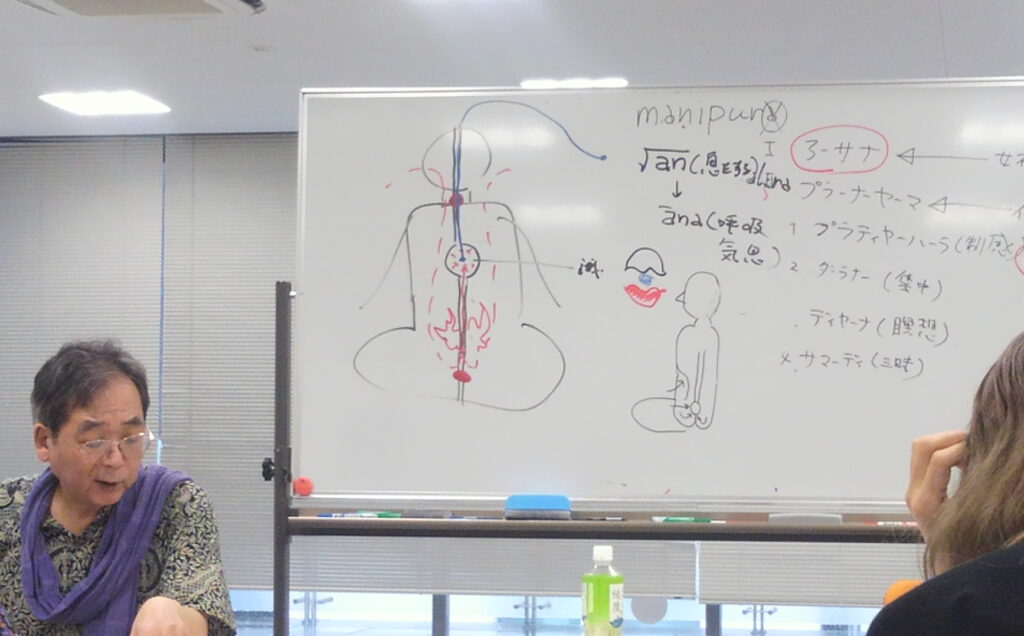 manipura
√an(息をする)
↓
āna(呼吸
気息)
I
アーサナ
プラーナーヤーマ
1 プラティヤーハーラ(制感
2 ダーラナー(集中)
ディヤーナ(瞑想)
4 サマーディ(三昧)